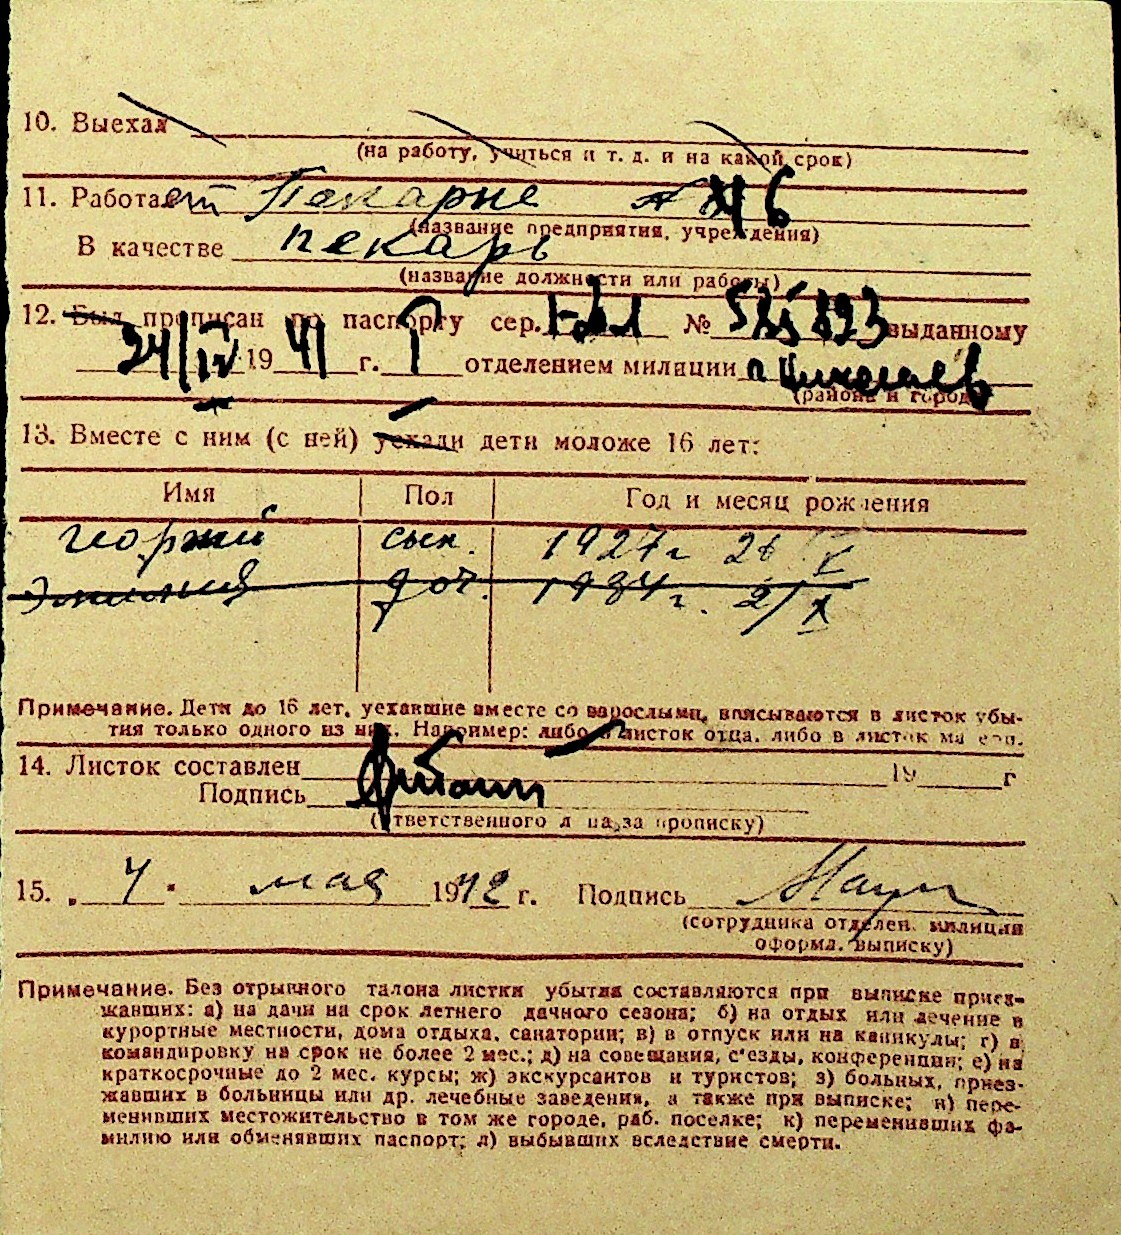 10. Выехал
(на работу, учиться и т. д. и на какой срок)
11. Работает Пекарне № 6
(название предприятия, учреждения)
В качестве пекарь
(название должности или работы)
12. Был прописан по паспорту сер. № выданному
24/IV 1941 г. I отделением милиции г. Николаев
(района и города)
13. Вместе с ним (с ней) уехали дети моложе 16 лет:
Имя Пол Год и месяц рождения
Георгий сын. 1927 г 26 V
доч. 1934 г. 2/X
Примечание. Дети до 16 лет, уехавшие вместе со взрослыми, вписываются в листок убы-
тия только одного из них. Например: либо в листок отца, либо в листок матери.
14. Листок составлен 19 г
Подпись
(ответственного лица за прописку)
15. „ 4 " мая 1942 г. Подпись
(сотрудника отделен. милиции
оформл. выписку)
Примечание. Без отрывного талона листки убытия составляются при выписке приез-
жавших: а) на дачи на срок летнего дачного сезона; б) на отдых или лечение в
курортные местности, дома отдыха, санатории; в) в отпуск или на каникулы; г) в
командировку на срок не более 2 мес.; д) на совещания, с'езды, конференции; е) на
краткосрочные до 2 мес. курсы; ж) экскурсантов и туристов; з) больных, приез-
жавших в больницы или др. лечебные заведения, а также при выписке; и) пере-
менивших местожительство в том же городе, раб. поселке; к) переменивших фа-
милию или обменявших паспорт; л) выбывших вследствие смерти.